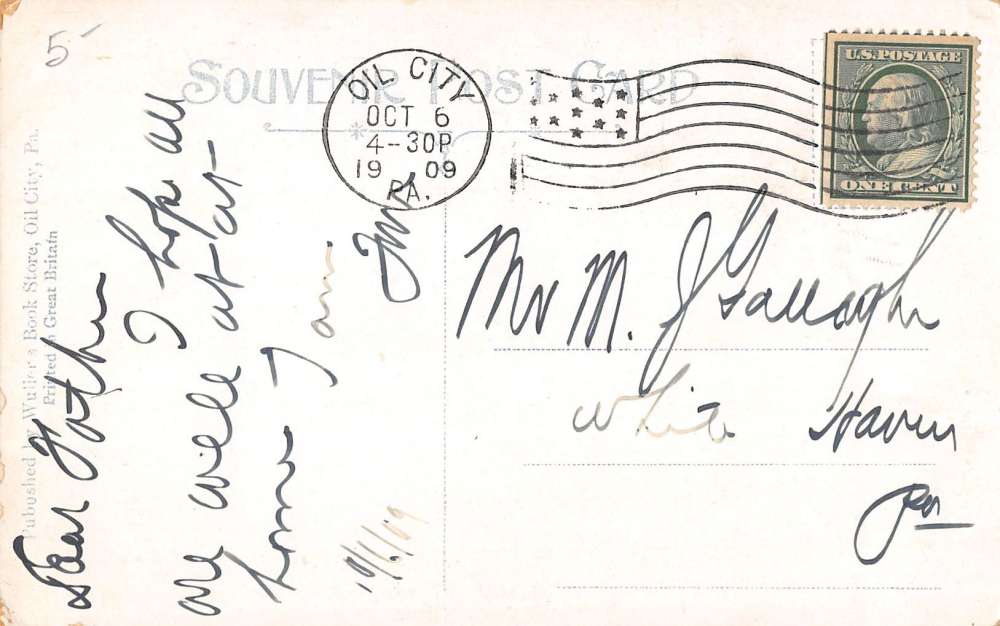 5-
SOUVENIR POST CARD
OIL CITY
OCT 6
4-30P
1909
PA.
U.S. POSTAGE
ONE CENT
Published by Wuller's Book Store, Oil City, Pa.
Printed in Great Britain
Dear Father
I hope all
are well at
home I am
10/6/09
Mr M. J Gallagher
White Haven
Pa